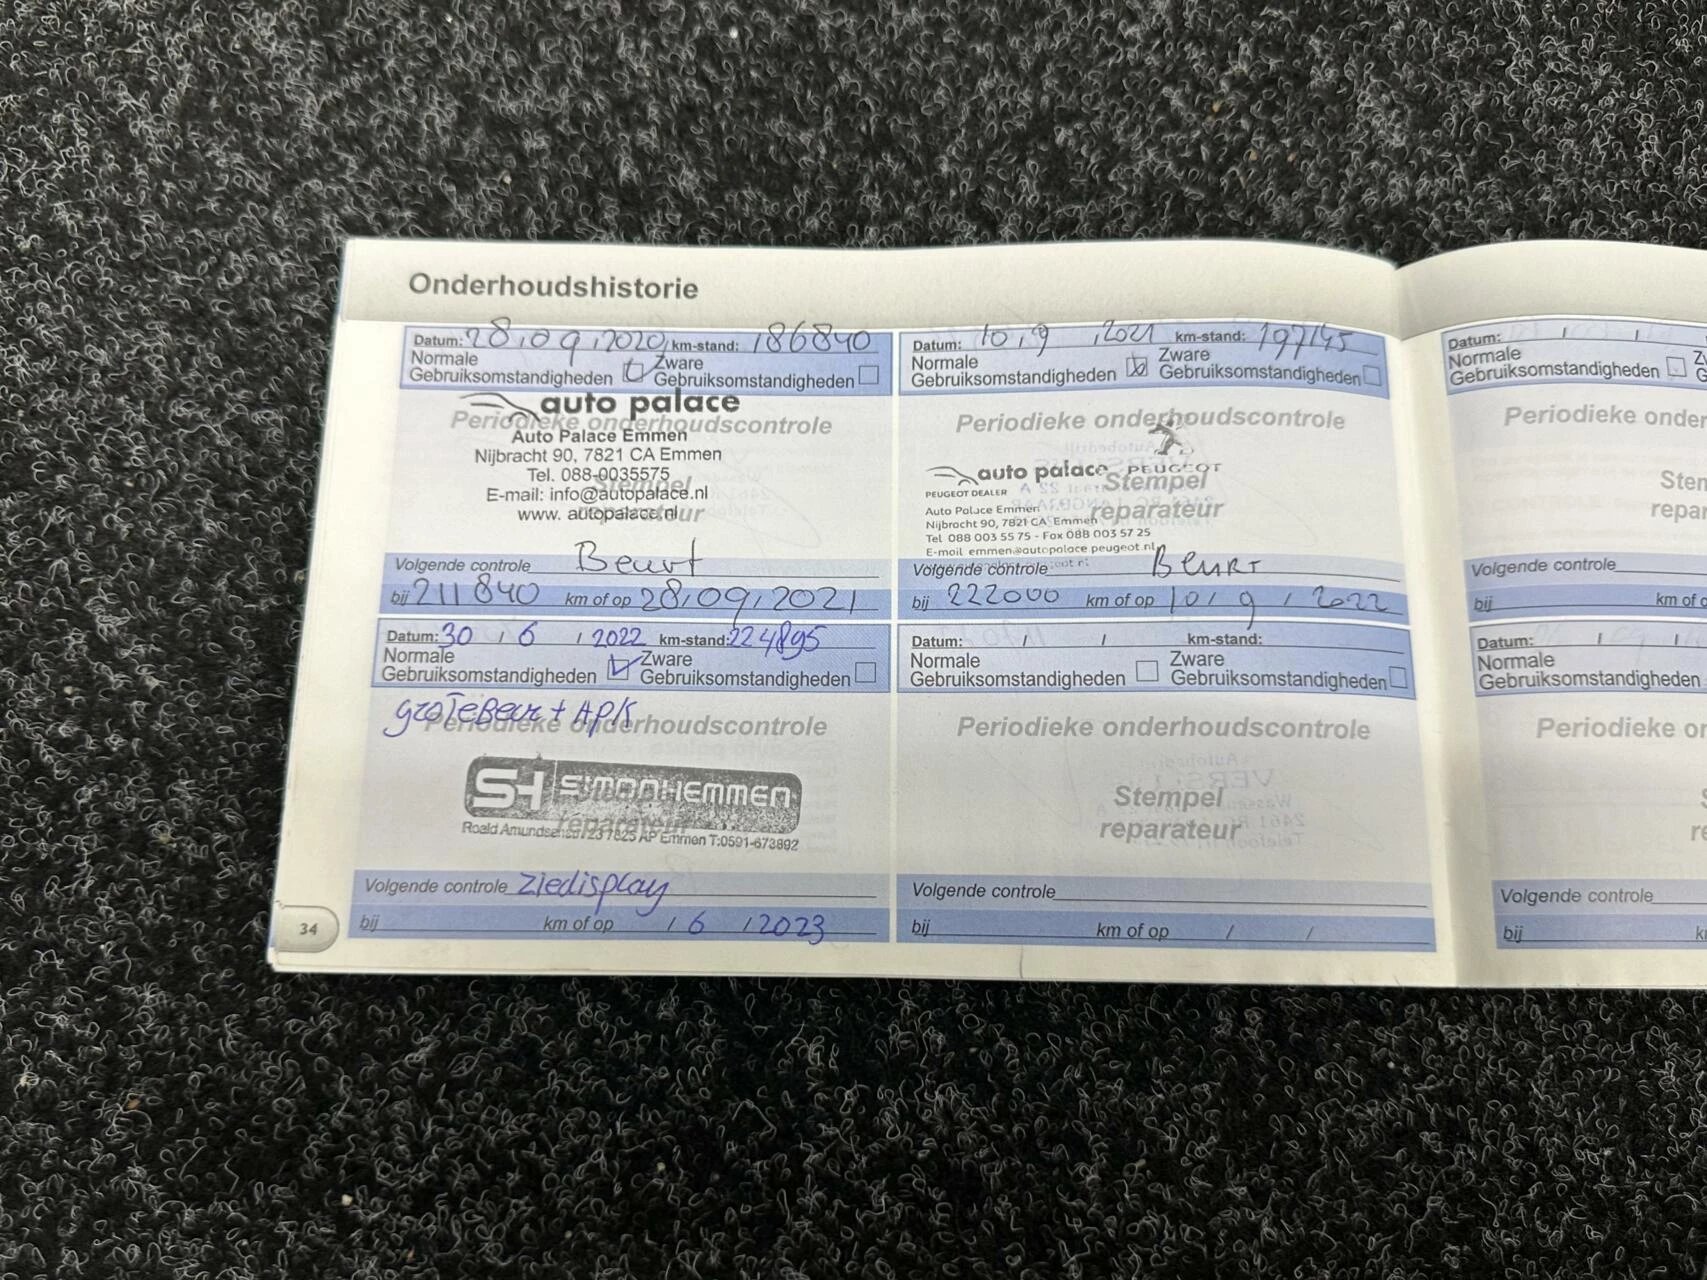 Onderhoudshistorie
Datum: 28,09,2020, km-stand: 186840
Normale Gebruiksomstandigheden Zware Gebruiksomstandigheden
auto palace
Periodieke onderhoudscontrole
Auto Palace Emmen
Nijbracht 90, 7821 CA Emmen
Tel. 088-0035575
Stempel
E-mail: info@autopalace.nl
www. autopalace.nl
reparateur
Volgende controle Beurt
bij 211840 km of op 28,09,2021
Datum: 10,9,2021 km-stand: 197145
Normale Gebruiksomstandigheden Zware Gebruiksomstandigheden
Periodieke onderhoudscontrole
auto palace PEUGEOT
Stempel
PEUGEOT DEALER
reparateur
Auto Palace Emmen
Nijbracht 90, 7821 CA Emmen
Tel 088 003 55 75 - Fax 088 003 57 25
E-mail emmen@autopalace.peugeot.nl
Volgende controle Beurt
bij 222000 km of op 10/9/2022
Datum: 30/6/2022 km-stand: 224895
Normale Gebruiksomstandigheden Zware Gebruiksomstandigheden
groTeBeur + APK
Periodieke onderhoudscontrole
SH SIMONHEMMEN
reparateur
7825 AP Emmen T:0591-673892
Volgende controle ziedisplay
bij km of op /6/2023
Datum: / / km-stand:
Normale Gebruiksomstandigheden Zware Gebruiksomstandigheden
Periodieke onderhoudscontrole
Stempel
reparateur
Volgende controle
bij km of op / /
34
Datum: / /
Normale
Gebruiksomstandigheden
Periodieke onder
Sten
repar
Volgende controle
bij km of o
Datum: / /
Normale
Gebruiksomstandigheden
Periodieke or
Volgende controle
bij